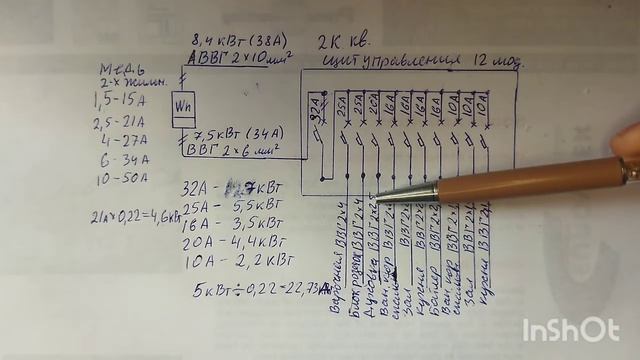 8,4 кВт (38А)
АВВГ 2×10 мм²
2К кв.
щит управления 12 мод.
Медь
2-х жильн.
1,5-15А
2,5-21А
4-27А
6-34А
10-50А
Wh
7,5 кВт (34А)
ВВГ 2×6 мм²
32А 25А 25А 20А 16А 16А 16А 16А 10А 10А 10А
32А - 7кВт
25А - 5,5кВт
16А - 3,5кВт
20А - 4,4кВт
10А - 2,2кВт
21А×0,22=4,6кВт
5кВт÷0,22=22,73А
Варочная ВВГ 2×4
Блок розеток ВВГ 2×4
Духовка ВВГ 2×2,5
Ван. кор ВВГ 2×
Зал ВВГ 2×
Кухня ВВГ 2×
Бойлер ВВГ 2×
Ван. кор ВВГ 2×
Зал ВВГ 2×
Кухня ВВГ 2×
InShOt